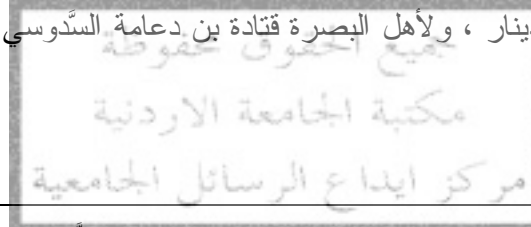 دينار ، ولأهل البصرة قتادة بن دعامة السَّدوسي
جميع الحقوق محفوظة
مكتبة الجامعة الاردنية
مركز ايداع الرسائل الجامعية